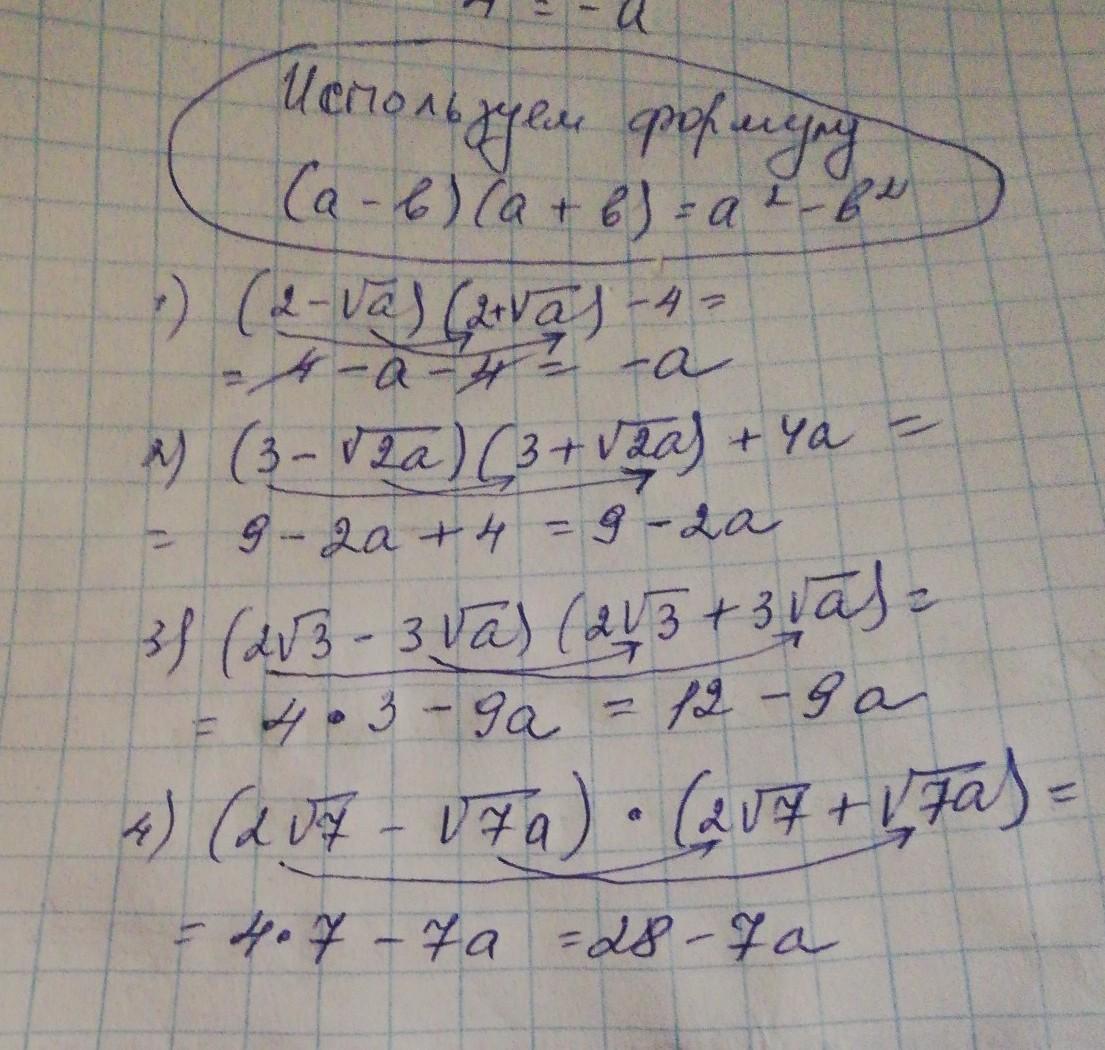 = -a
Используем формулу
(а - в)(а + в) = а² - в²
1) (2 - √a)(2+√a) - 4 =
= 4 - a - 4 = -a
2) (3 - √2a)(3 + √2a) + 4a =
= 9 - 2a + 4 = 9 - 2a
3) (2√3 - 3√a)(2√3 + 3√a) =
= 4 • 3 - 9a = 12 - 9a
4) (2√7 - √7a) • (2√7 + √7a) =
= 4 • 7 - 7a = 28 - 7a